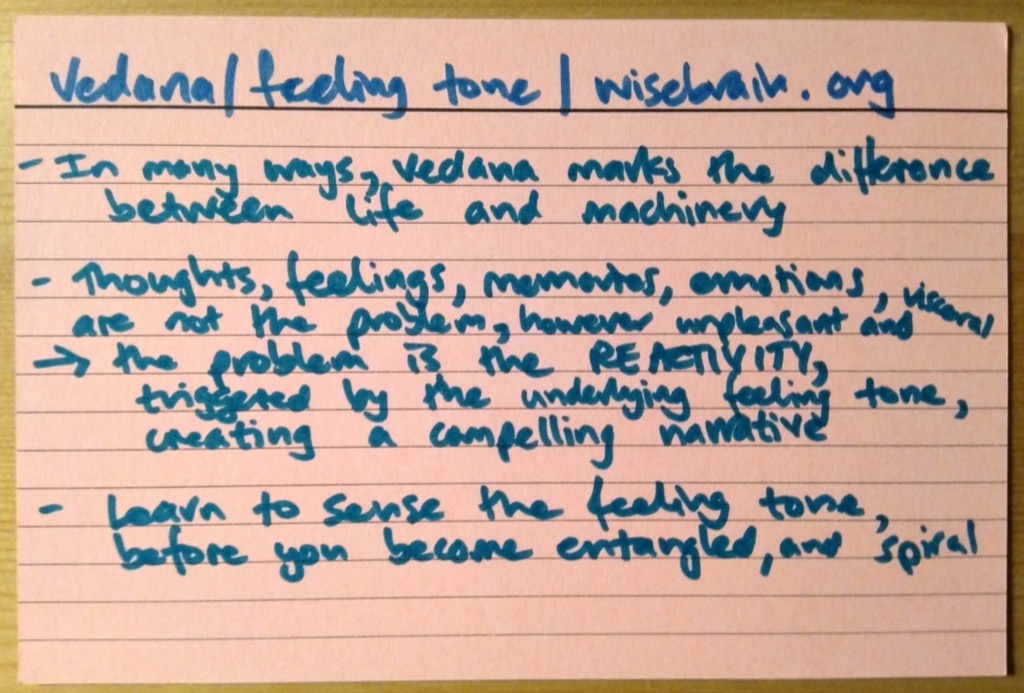 Vedana/feeling tone/wisebrain.org
- In many ways, vedana marks the difference
between life and machinery
- Thoughts, feelings, memories, emotions,
are not the problem, however unpleasant and visceral
→ the problem is the REACTIVITY,
triggered by the underlying feeling tone,
creating a compelling narrative
- Learn to sense the feeling tone,
before you become entangled, and spiral